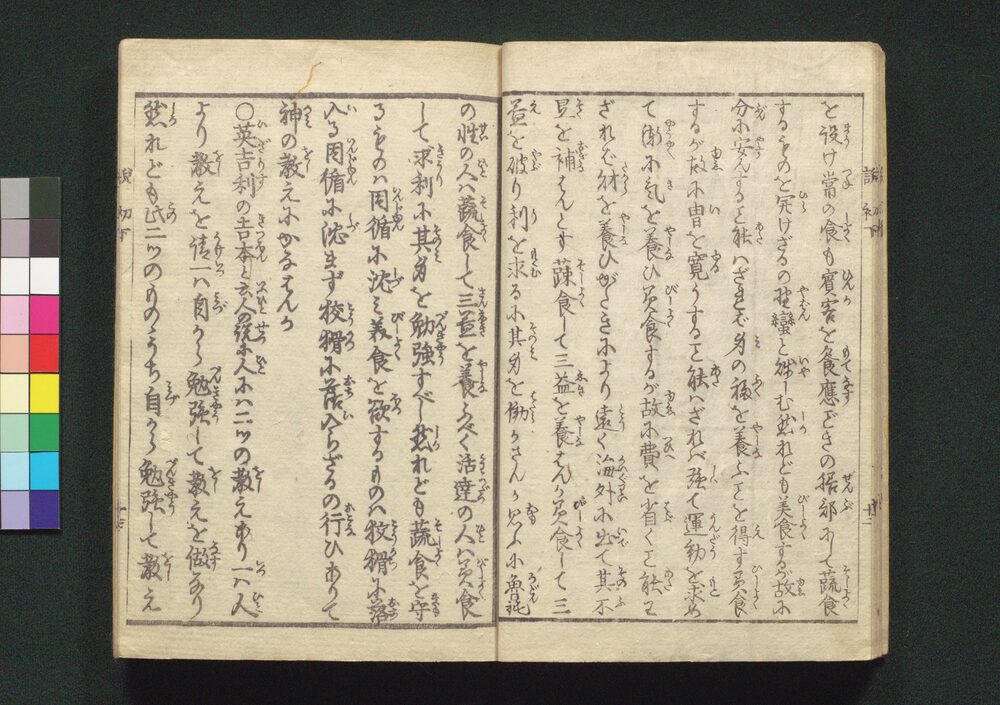 を設け常の食も賓客を食應ときの据部にして蔬食
するものを受けざるの野蠻と卑しむ然れども美食するが故に
分に安んずること能はざれば身の福を養ふことを得ず美食
するが故に胃を寛うすること能はざれば強て運動を求め
て漸に氣を養ひ美食するが故に費を省くこと能は
ざれば財を養ひがたきにより遠く海外に出て其不
足を補はんとす蔬食して三益を養はんか美食して三
益を破り利を求るに其身を働かさんか思ふに魯鈍
の性の人は蔬食して三益を養ふべく活達の人は美食
して求利に其身を勉強すべし然れども蔬食を守
るものは因循に沈み美食を欲するものは狡猾に落
入る因循に沈まず狡猾に落入らざるの行ひありて
神の教えにかなはんか
〇英吉利の吉本と云人の説に人には二ツの教えあり一は人
より教えを請一は自から勉強して教えを做なり
然れども此二ツのもののうち自から勉強して教え